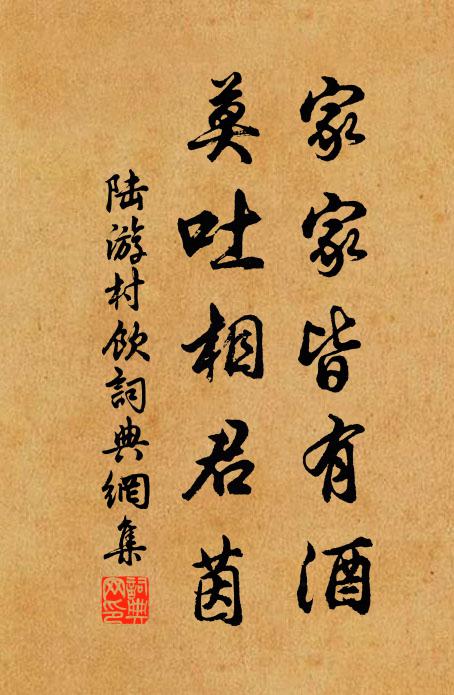 家家皆有酒
莫吐相君茵
陆游村饮詞典網集
詞典网印